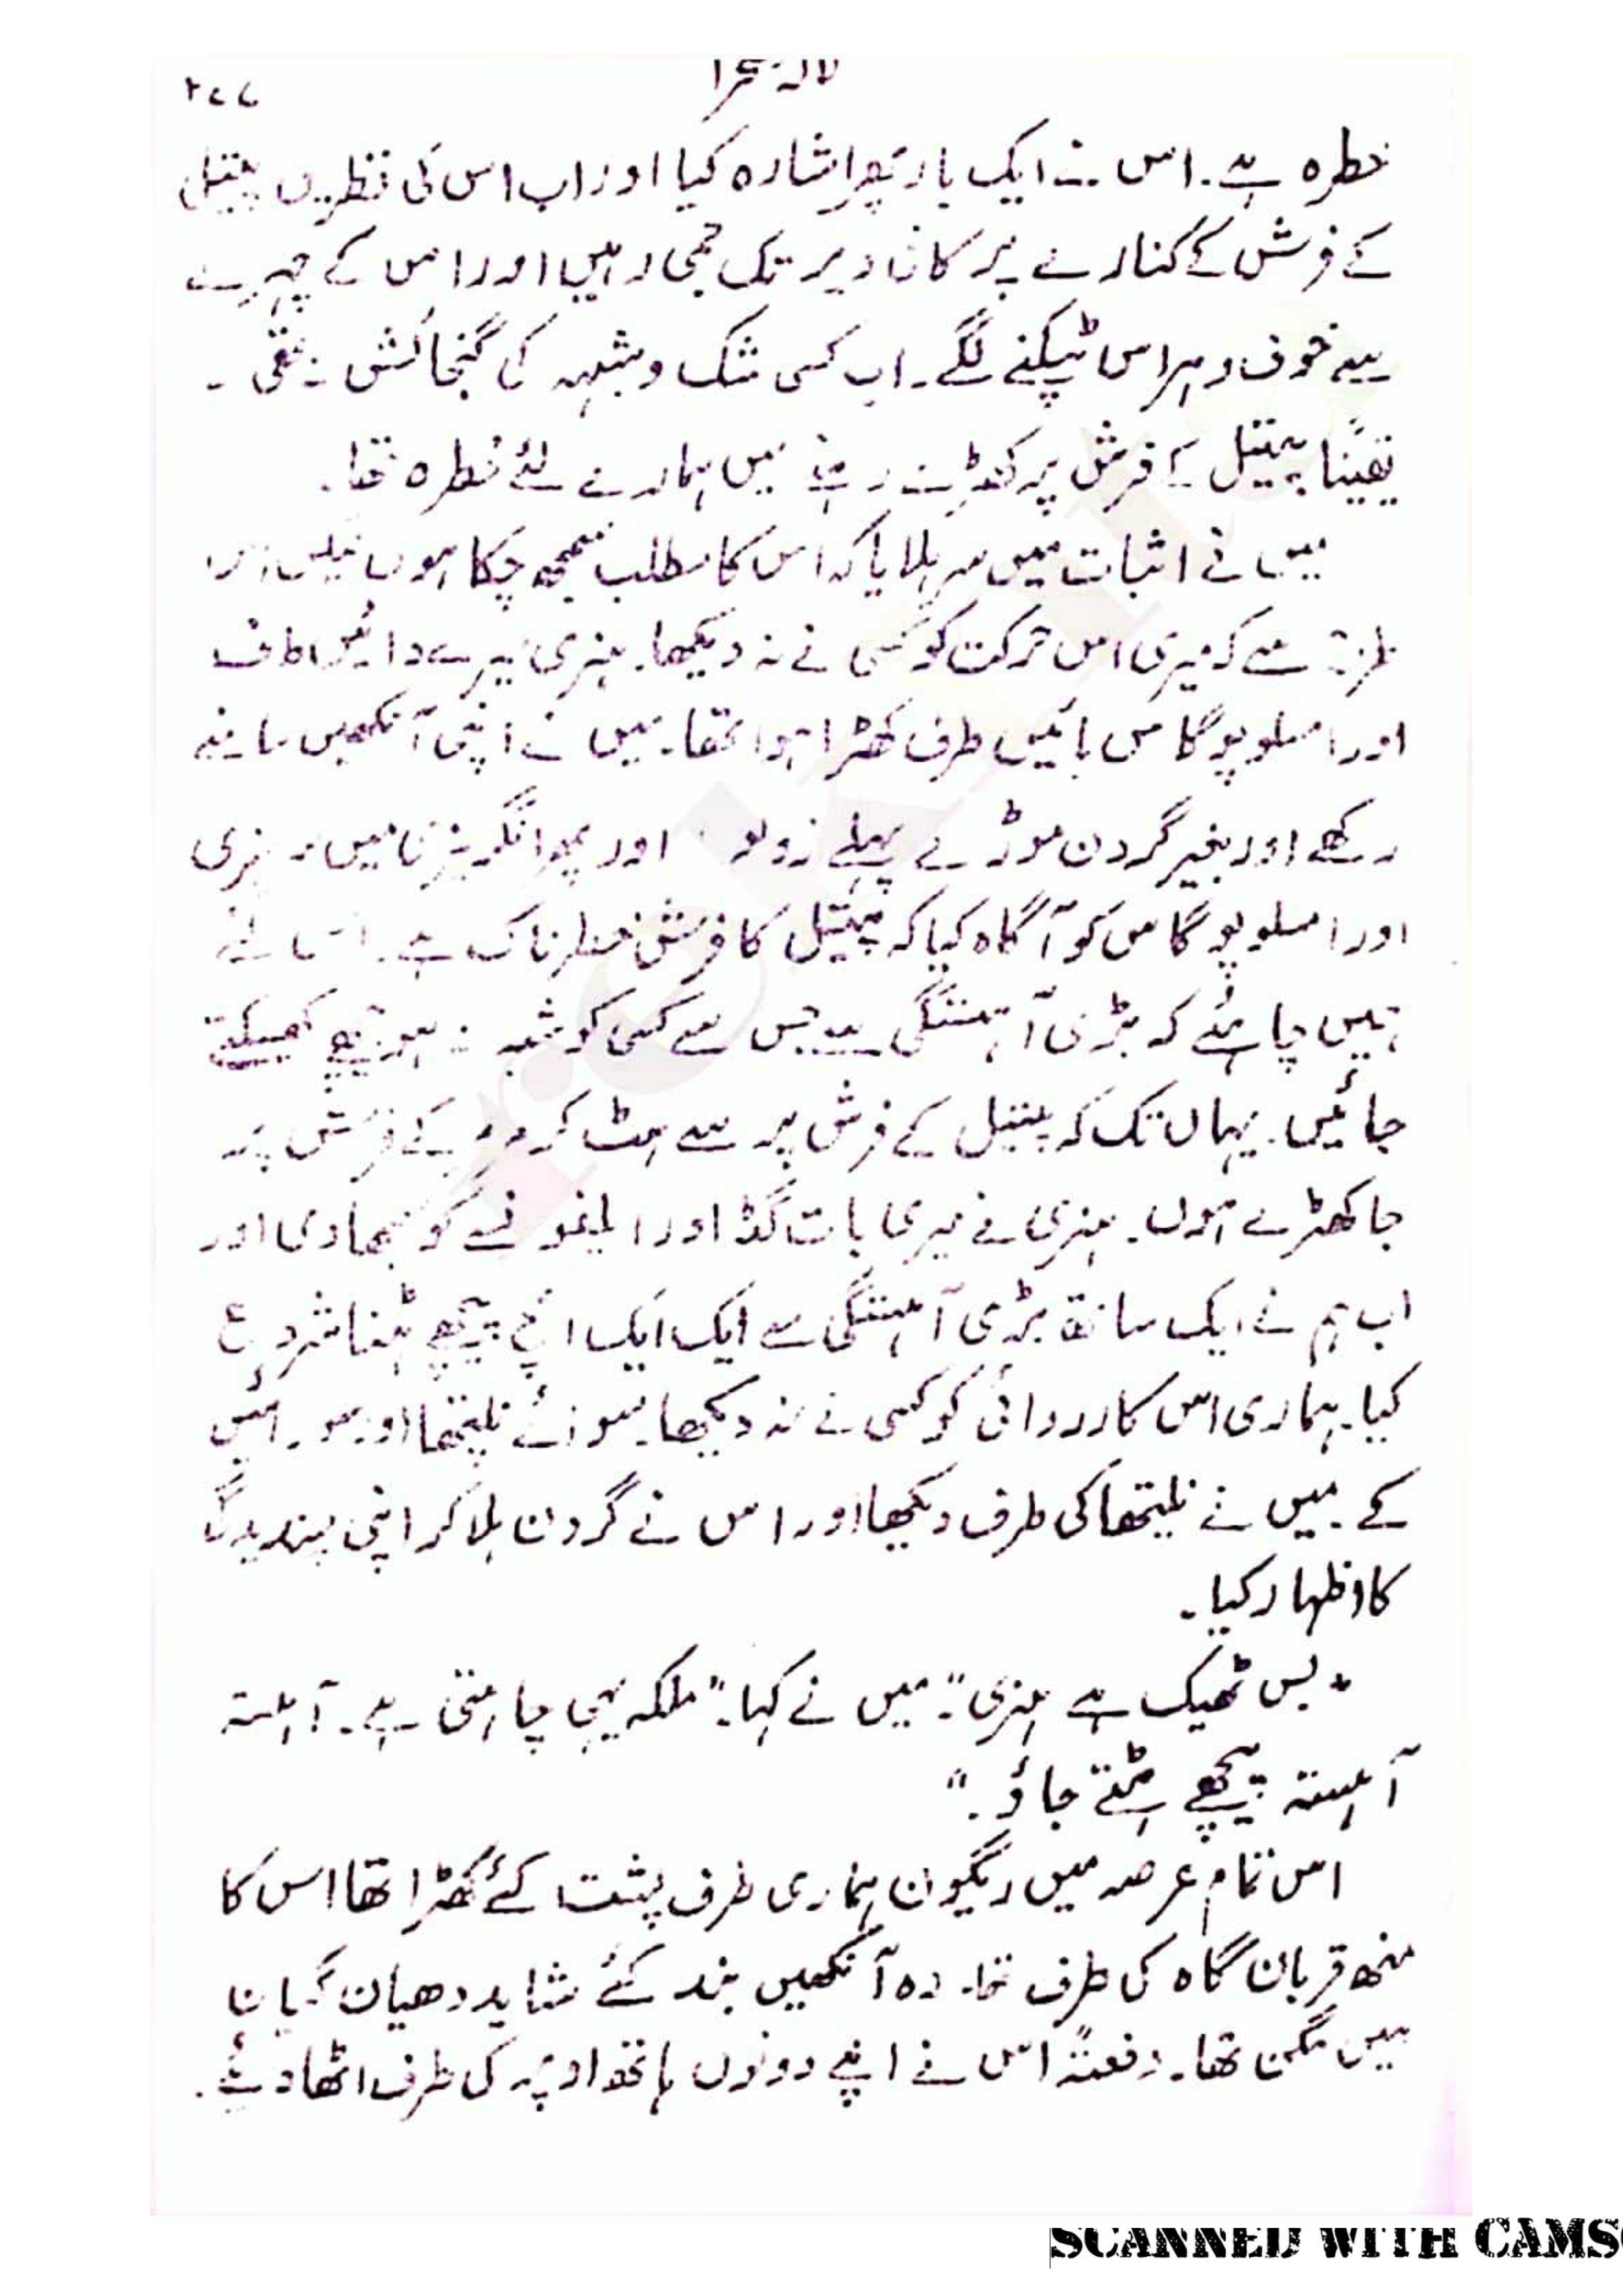 لالہ صحرا
۲۷۷
خطرہ ہے۔ اس نے ایک بار پھر اشارہ کیا اور اب اس کی نظریں پیتل
کے فرش کے کنارے پر کافی دیر تک جمی رہیں اور اس کے چہرے
سے خوف و ہراس ٹپکنے لگے۔ اب کسی شک و شبہہ کی گنجائش نہ تھی۔
یقیناً پیتل کے فرش پر کھڑے رہنے میں ہمارے لئے خطرہ تھا۔
میں نے اثبات میں سر ہلایا کہ اس کا مطلب سمجھ چکا ہوں لیکن اس
طرح سے کہ میری اس حرکت کو کسی نے نہ دیکھا۔ ہنری میرے دائیں طرف
اور امسلوپوگاس بائیں طرف کھڑا ہوا تھا۔ میں نے اپنی آنکھیں سامنے
رکھے اور بغیر گردن موڑے پہلے زولو اور پھر انگریزی میں ہنری
اور امسلوپوگاس کو آگاہ کیا کہ پیتل کا فرش خطرناک ہے۔ اس لئے
ہمیں چاہئے کہ بڑی آہستگی سے جس سے کسی کو شبہ نہ ہو پیچھے کھسکتے
جائیں۔ یہاں تک کہ پیتل کے فرش پر سے ہٹ کر مرمر کے فرش پر
جا کھڑے ہوں۔ ہنری نے میری بات گڈ اور ایلفونسے کو سمجھا دی اور
اب ہم نے ایک ساتھ بڑی آہستگی سے ایک ایک انچ پیچھے ہٹنا شروع
کیا۔ ہماری اس کارروائی کو کسی نے نہ دیکھا۔ سوائے نلیتھا اور سورائیس
کے۔ میں نے نلیتھا کی طرف دیکھا اور اس نے گردن ہلا کر اپنی پسندیدگی
کا اظہار کیا۔
"بس ٹھیک ہے ہنری"۔ میں نے کہا۔ "ملکہ یہی چاہتی ہے۔ آہستہ
آہستہ پیچھے ہٹتے جاؤ۔"
اس تمام عرصہ میں ریگون ہماری طرف پشت کئے کھڑا تھا اس کا
منھ قربان گاہ کی طرف تھا۔ وہ آنکھیں بند کئے شاید دھیان گیان
میں مگن تھا۔ دفعتہً اس نے اپنے دونوں ہاتھ اوپر کی طرف اٹھا دیئے۔
SCANNED WITH CAMS